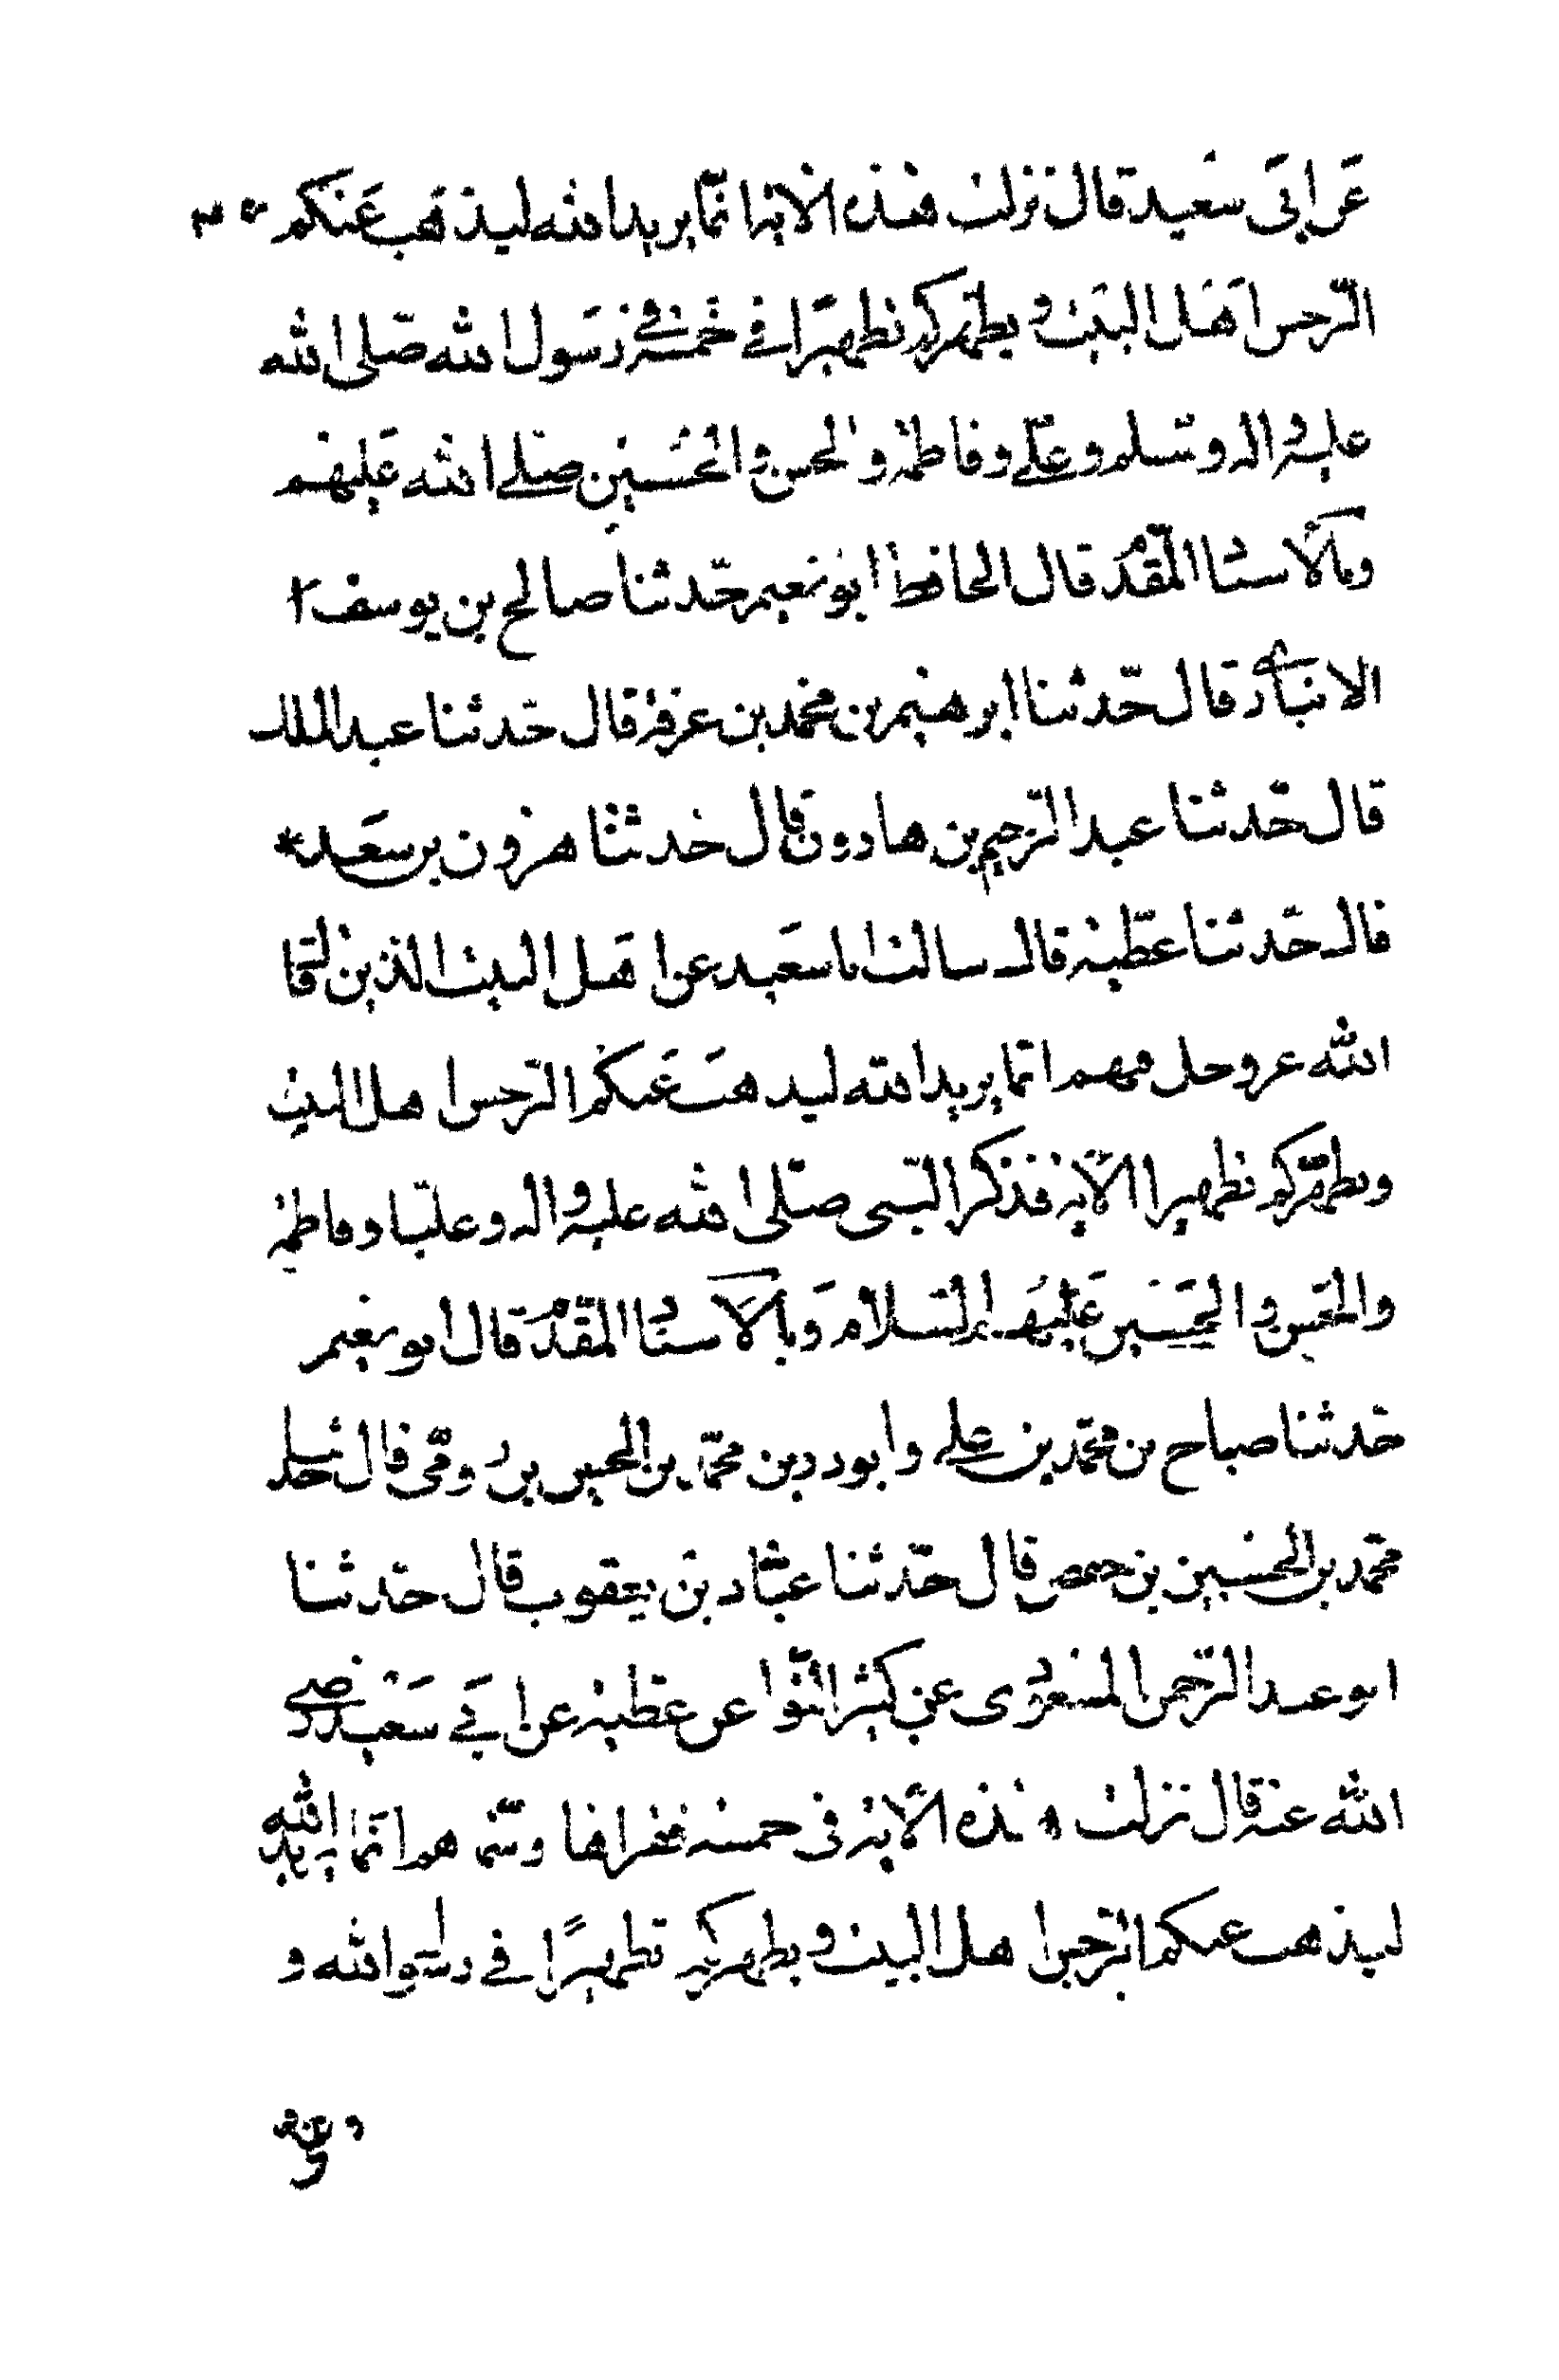 عن ابي سعيد قال نزلت هذه الاية انما يريد الله ليذهب عنكم
الرجس اهل البيت و يطهركم تطهيرا في خمسة في رسول الله صلى الله
عليه واله وسلم وعلي وفاطمة والحسن والحسين صلى الله عليهم
وبالاسناد المقدم قال الحافظ ابو نعيم حدثنا صالح بن يوسف
الانباري قال حدثنا ابرهيم بن محمد بن عرفة قال حدثنا عبد الملك
قال حدثنا عبد الرحيم بن هارون قال حدثنا هرون بن سعد
قال حدثنا عطية قال سالت ابا سعيد عن اهل البيت الذين قال
الله عز وجل فيهم انما يريد الله ليذهب عنكم الرجس اهل البيت
ويطهركم تطهيرا الآية فذكر النبي صلى الله عليه واله وعليا وفاطمة
والحسن والحسين عليهم السلام وبالاسناد المقدم قال ابو نعيم
حدثنا صباح بن محمد بن علي وابو بن محمد بن الحسين بن قال حدثنا
محمد بن الحسين بن حفص قال حدثنا عباد بن يعقوب قال حدثنا
ابو عبد الرحمن المسعودي عن كثير النوا عن عطية عن ابي سعيد رضي
الله عنه قال نزلت هذه الآية في خمسة فقراها وسماهم انما يريد الله
ليذهب عنكم الرجس اهل البيت و يطهركم تطهيرا في رسول الله و